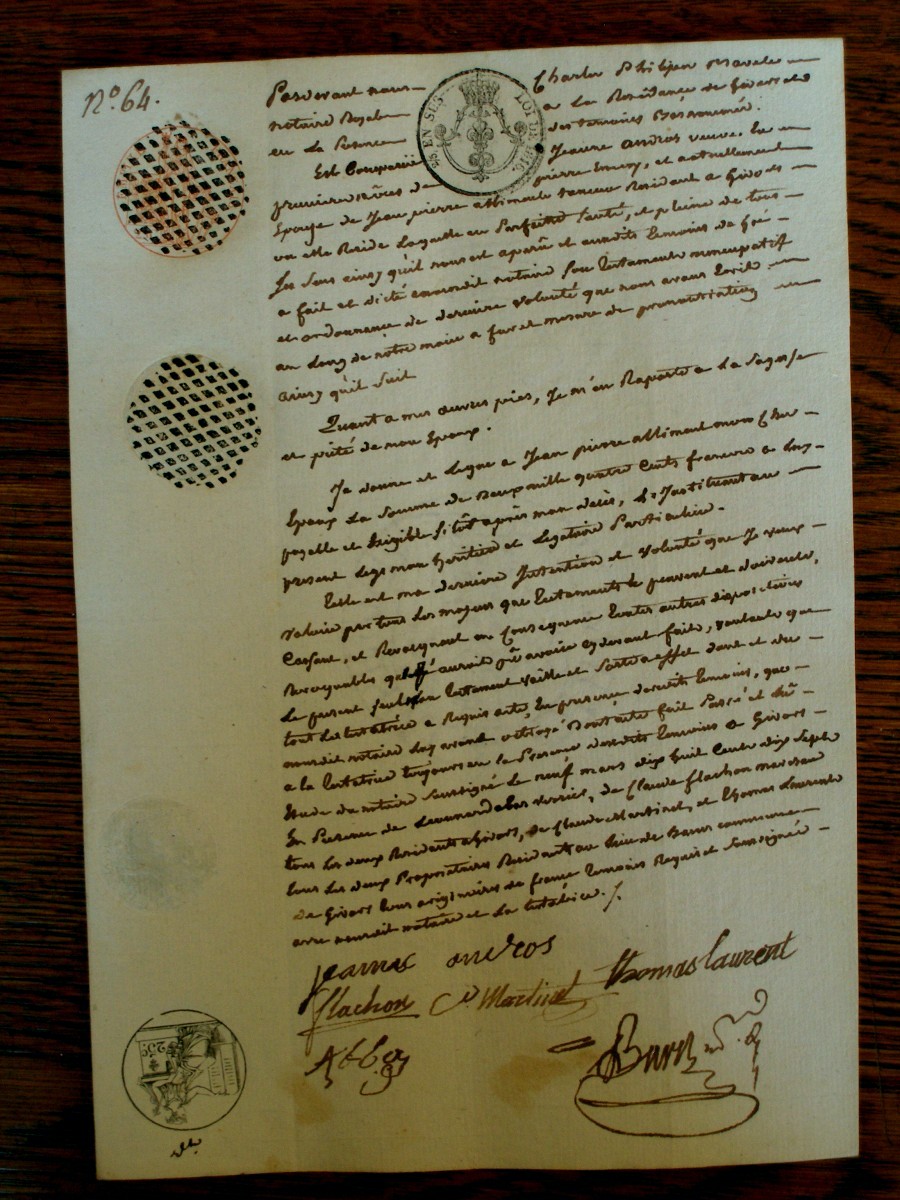 N.° 64.
Pardevant nous Charles Philipon
notaire Royal a La Residence de Givors et
en La Presence des temoins
Est Comparue Jeanne andros veuve En
premieres nôces de pierre Emery, et actuellement
Epouse de Jean pierre allimant Residant a Givors
ou elle Reside Laquelle en Parfaite Santé, et pleine de tous
Ses Sens ainsy qu'il nous est aparû et auxdits temoins de foi
a fait et dicté a nousdit notaire Son testament noncupatif
et ordonnance de derniere volonté que nous avons Ecrit
au Long de notre main a fur et mesure de prononciation
ainsy qu'il Suit
Quant a mes œuvres pies, Je m'en Raporte a La Sagesse
et pieté de mon Epoux.
Je donne et Legue a Jean pierre allimant mon Cher
Epoux La Somme de Deux mille quatre Cents francs
payable et Exigible Sitôt après mon decès, L'Instituant au
present Legs mon heritier et Legataire Particulier.
Telle est ma derniere Intention et volonté que Je veux
valoir par tous Les moyens que testaments le peuvent et doivent,
Cassant, et Revoquant en Consequence toutes autres dispositions
Revoquables que J'aurois pû avoir cy devant fait, voulant que
Le present Seul Son testament vaille et Sorte a effet dont et du
tout La testatrice a Requis acte, En presence desdits temoins, que
nousdit notaire Luy avons octroyé Dont acte fait Passé et Lû
a la testatrice toujours en la Presence desdits temoins a Givors
Etude du notaire Soussigné Le neuf mars dix huit Cents dix Sept
En Presence de Leonnard abbe, de Claude flachon
tous Les deux Residants a Givors, de Claude Martinet, et thomas Laurent
tous Les deux Proprietaires Residant au Lieu de Bans commune
de Givors tous originaires de france temoins Requis et Soussignés
avec nousdit notaire et La testatrice. /.
jeanne andros
flachon C Martinet thomas laurent
Abbe
EN SUS
LOI DE
25c